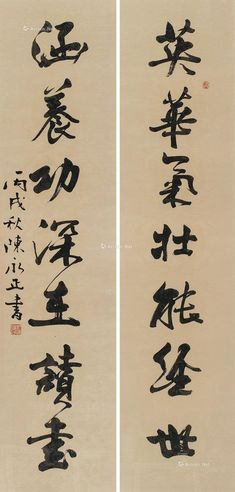 英華氣壯能經世
涵養功深在讀書
丙戌秋陳永正書